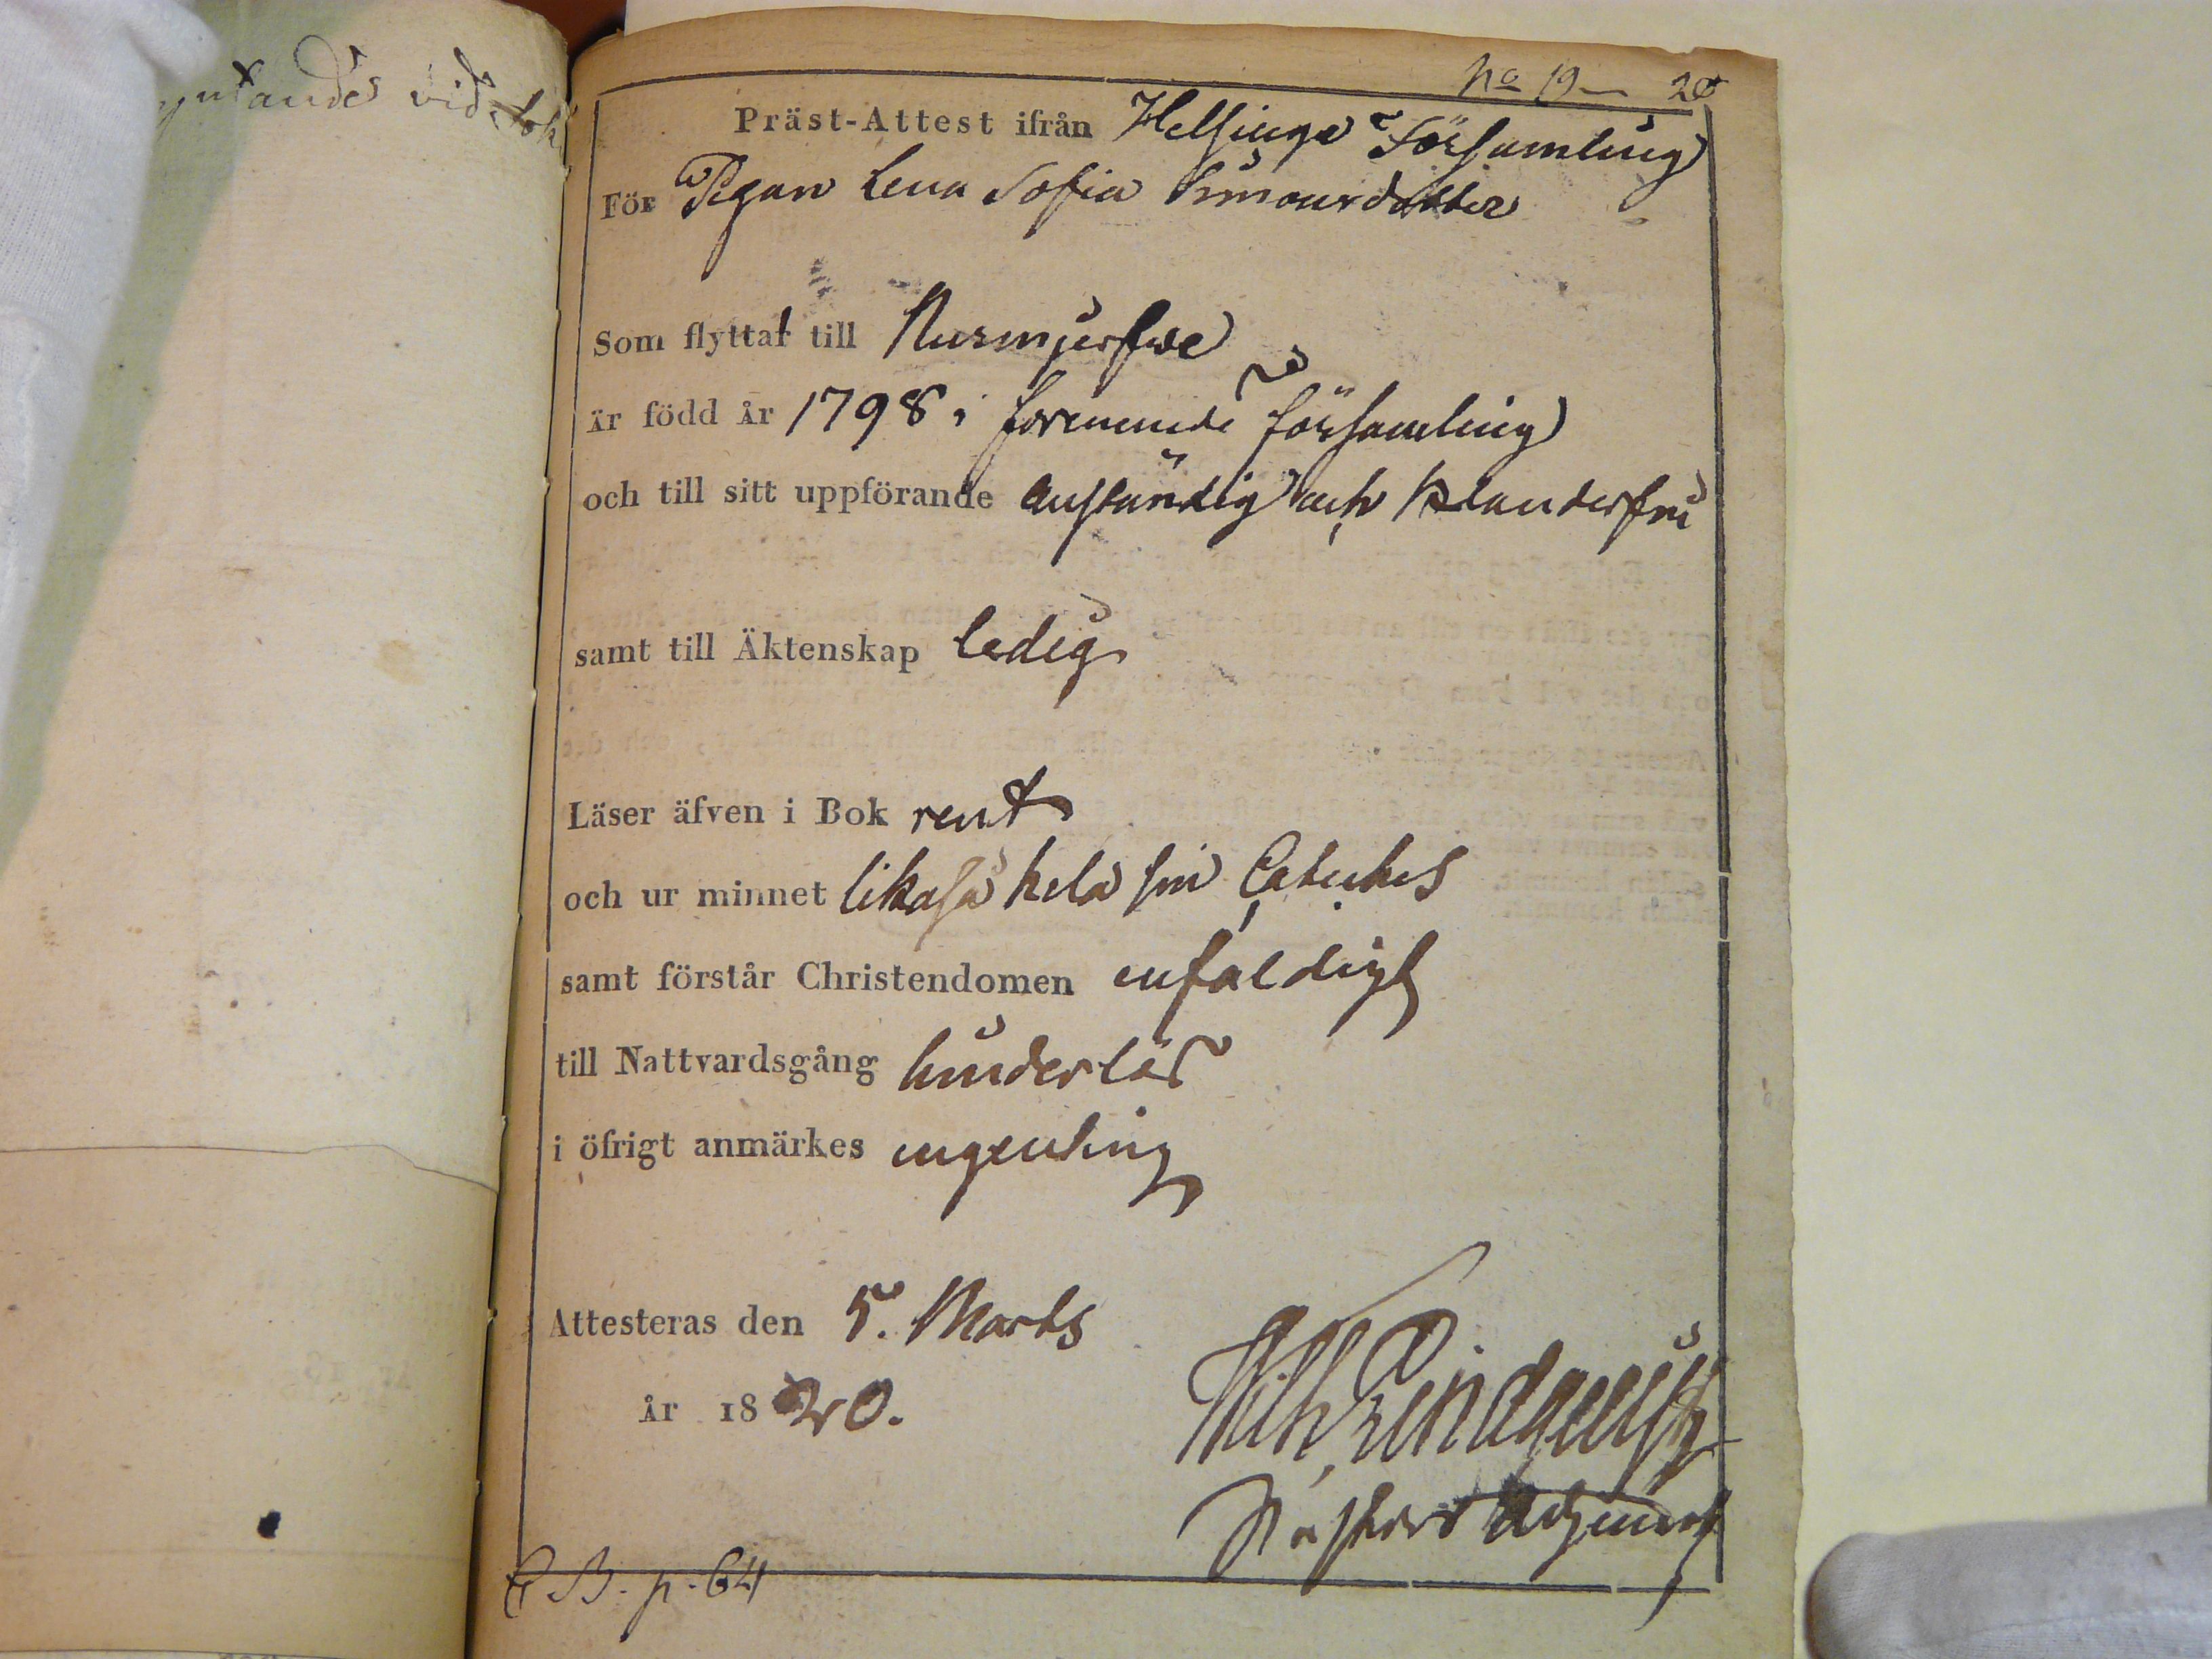 yntandes vid
No 19 — 20
Präst-Attest ifrån Helsinge Församling
För Pigan Lena Sofia Simonsdotter
Som flyttat till Nurmjerfwe
är född år 1798 i förenemde församling
och till sitt uppförande anständig och klanderfri
samt till Äktenskap ledig
Läser äfven i Bok rent
och ur minnet likaså hela sin Cateches
samt förstår Christendomen enfaldigt
till Nattvardsgång hinderlös
i öfrigt anmärkes ingenting
Attesteras den 5. Marts
år 1820.
Wilh.
Pastors Adjunct
B. p. 64